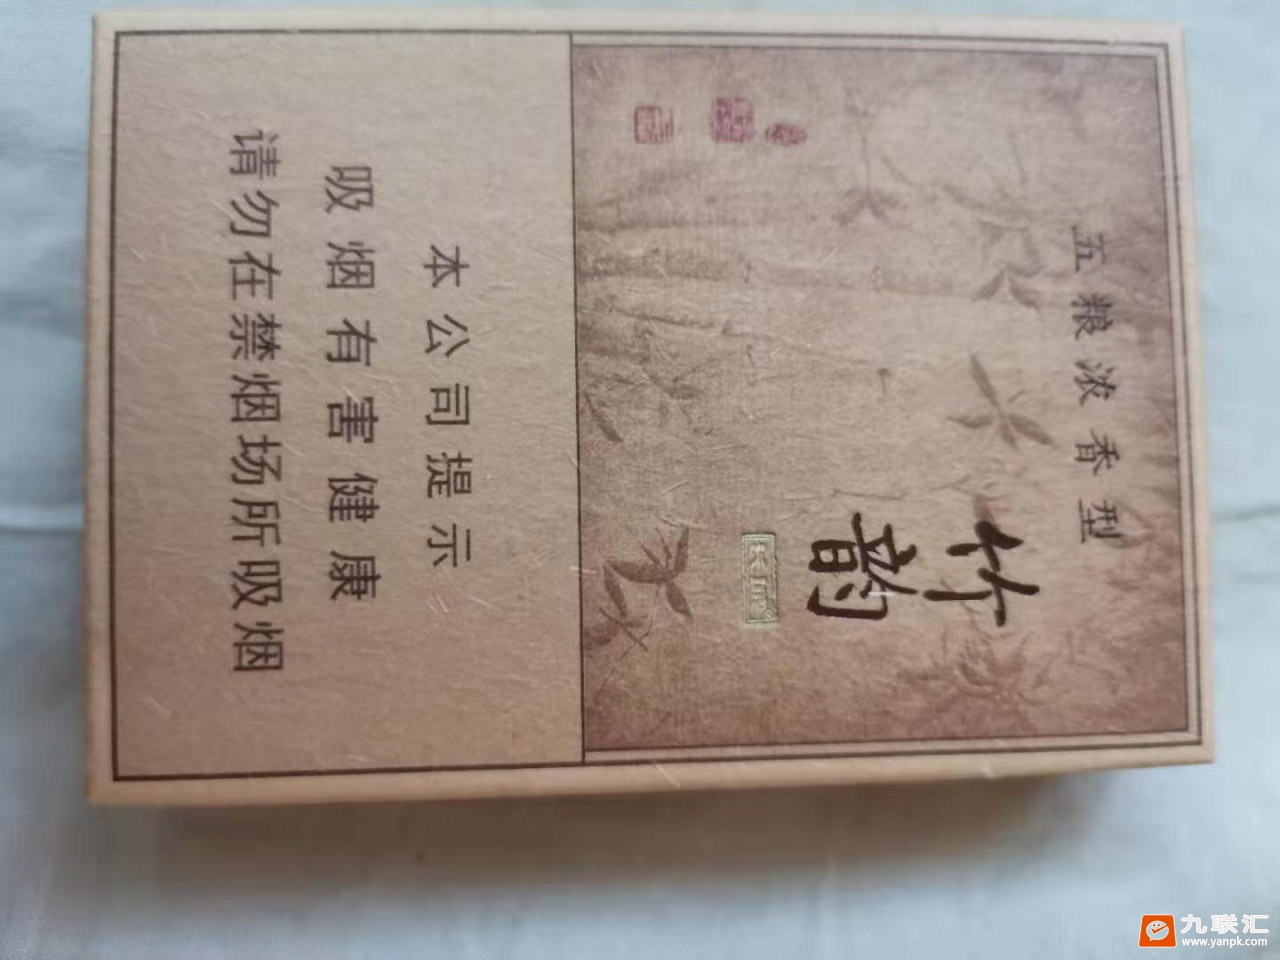 五粮浓香型
竹韵
长宜
本公司提示
吸烟有害健康
请勿在禁烟场所吸烟
九联汇
www.yanpk.com